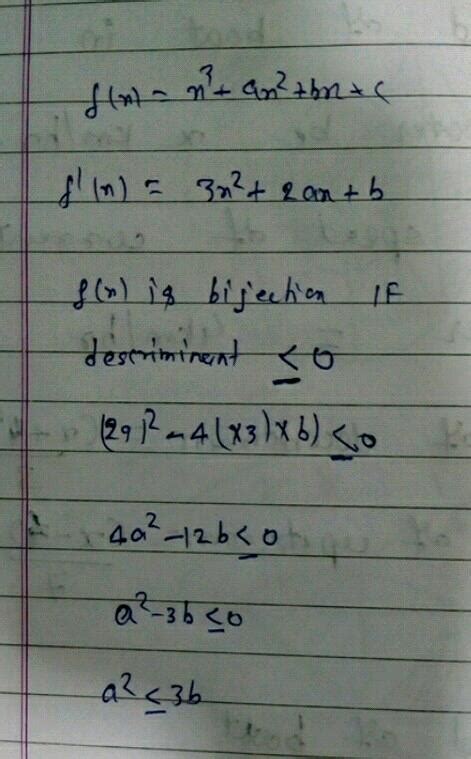 f(x) = x³ + ax² + bx + c
f'(x) = 3x² + 2ax + b
f(x) is bijection IF
descriminent ≤ 0
(2a)² - 4(×3)×b) ≤ 0
4a² - 12b ≤ 0
a² - 3b ≤ 0
a² ≤ 3b